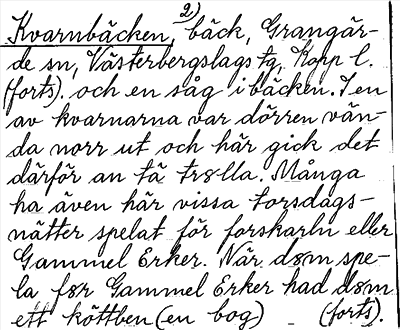 2)
Kvarnbäcken, bäck, Grangär-
de sn, Västerbergslags tg, Kopp l.
(forts). och en såg i bäcken. I en
av kvarnarna var dörren vän-
da norr ut och här gick det
därför an tä trolla. Många
ha även här vissa torsdags-
nätter spelat för forskarln eller
Gammel Erker. När dom spe-
la för Gammel Erker had dom
ett köttben (en bog) (forts).